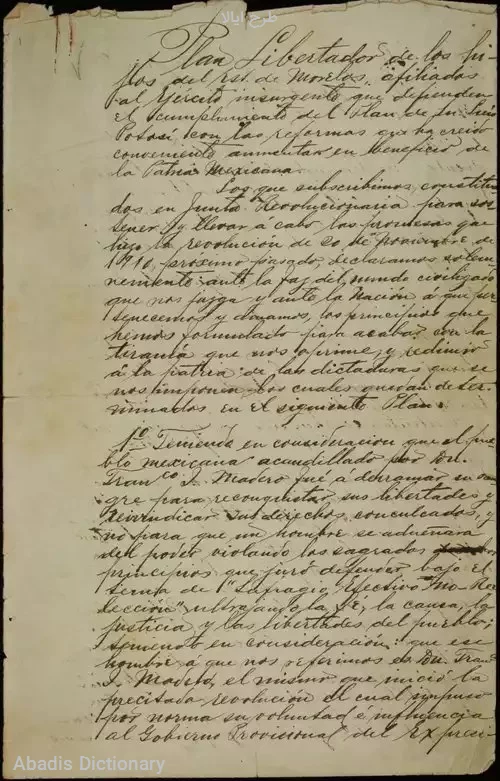 طرح ایالا
Plan Libertador de los hi-
jos del Est. de Morelos, afiliados
al Ejército insurgente que defienden
el cumplimiento del Plan de Sn. Luis
Potosí con las reformas que ha creido
conveniente aumentar en beneficio de
la Patria Mexicana.
Los que subscribimos, constitui-
dos en Junta Revolucionaria para sos-
tener y llevar á cabo las promesas que
hizo la revolución de 20 de Noviembre de
1910, próximo pasado, declaramos solem-
nemente ante la faz del mundo civilizado
que nos juzga y ante la Nación á que per
tenecemos y amamos, los principios que
hemos formulado para acabar con la
tiranía que nos oprime y redimir
á la patria de las dictaduras que se
nos imponen los cuales quedan deter-
minados en el siguiente Plan:
1º. Teniendo en consideracion que el pue-
blo mexicano acaudillado por Dn.
Franco. I. Madero fué a derramar su san-
gre para reconquistar sus libertades y
reivindicar sus derechos conculcados, y
no para que un hombre se adueñara
del poder violando los sagrados
principios que juró defender bajo el
lema de "Sufragio Efectivo" "No Ree-
lección", ultrajando la fé, la causa, la
justicia y las libertades del pueblo;
teniendo en consideración: que ese
hombre á que nos referimos es Dn. Franco
I. Madero, el mismo que inició la
precitada revolución el cual impuso
por norma su voluntad é influencia
al Gobierno Provisional del Ex presi-
Abadis Dictionary